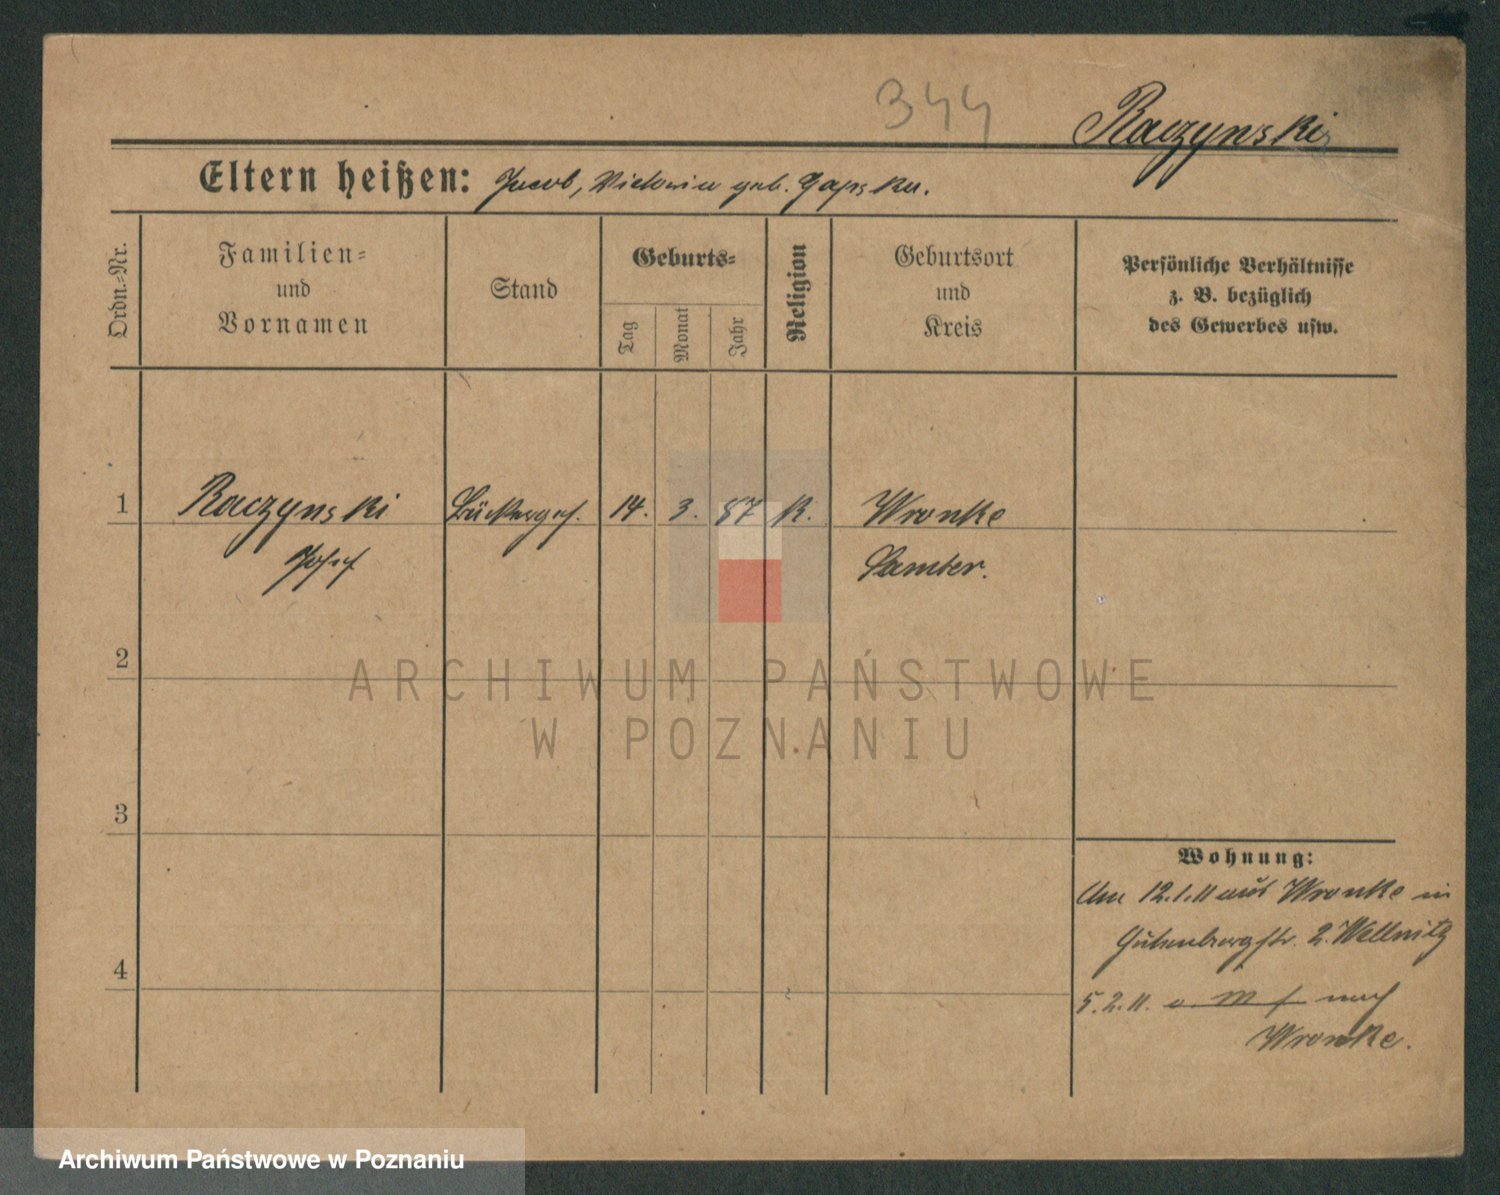 344
Raczynski
Eltern heißen: Jacob, Victoria geb. Gapska.
Ordn.-Nr.
Familien-
und
Vornamen
Stand
Geburts-
Tag
Monat
Jahr
Religion
Geburtsort
und
Kreis
Persönliche Verhältnisse
z. B. bezüglich
des Gewerbes usw.
1 Raczynski Bäckerges. 14. 3. 87 K. Wronke
Josef Samter.
2
ARCHIWUM PAŃSTWOWE
W POZNANIU
3
Wohnung:
Am 12.1.11 aus Wronke in
Gutenbergstr. 2. Wellnitz
4
5.2.11. nach
Wronke.
Archiwum Państwowe w Poznaniu